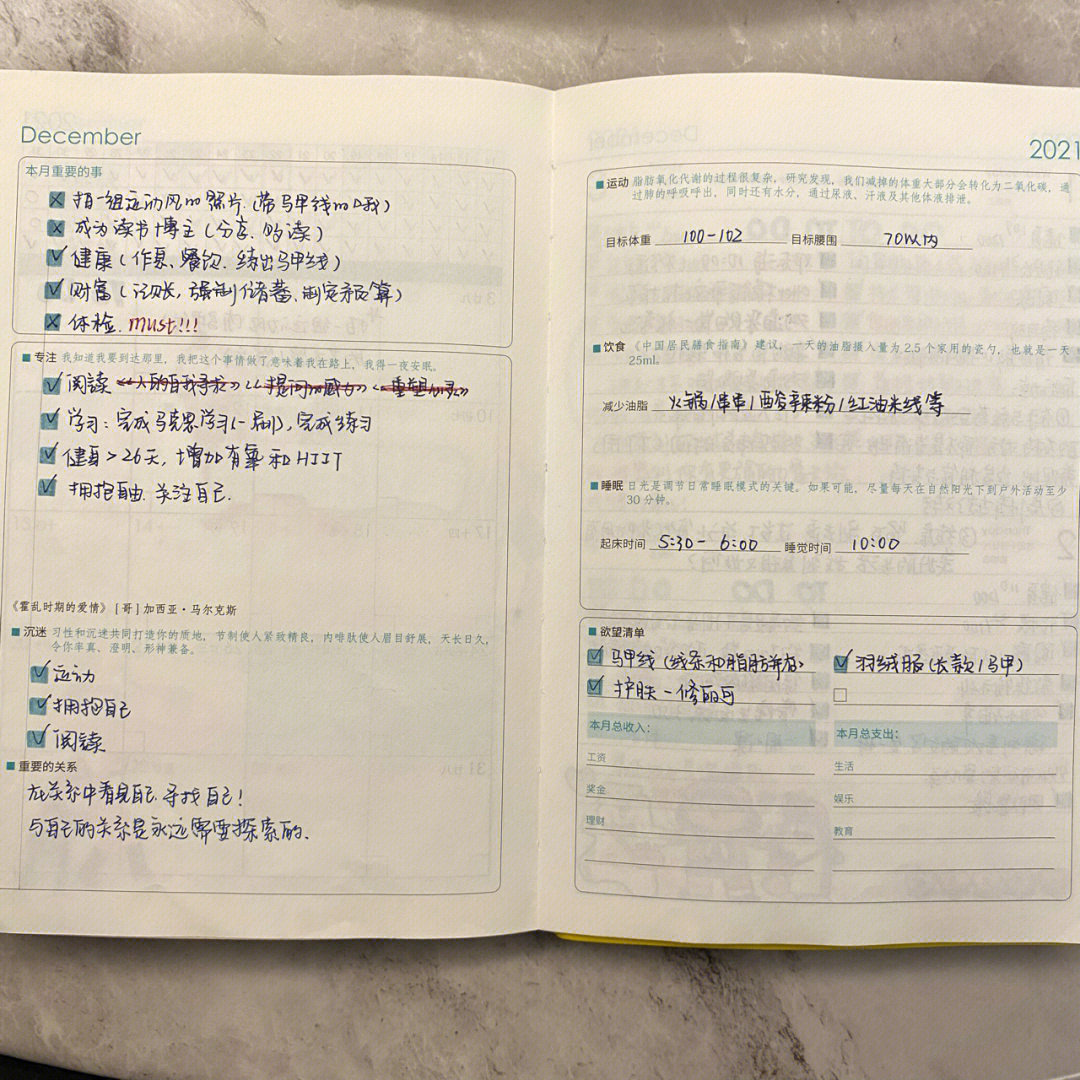 December
本月重要的事
拍一组运动风的照片.(带马甲线的我)
成为读书博主(分享.畅读)
健康(作息,餐饮.练出马甲线)
财富(记账,强制储蓄,制定预算)
体检. must!!!
专注 我知道我要到达那里,我把这个事情做了意味着我在路上,我得一夜安眠。
阅读《人的自我寻求》《提问的威力》《重塑心灵》
学习:完成马克思学习(一刷),完成练习
健身>26天,增加有氧和HIIT
拥抱自由.关注自己.
《霍乱时期的爱情》 [哥] 加西亚·马尔克斯
沉迷 习性和沉迷共同打造你的质地,节制使人紧致精良,内啡肽使人眉目舒展,天长日久,
令你率真、澄明、形神兼备。
运动
拥抱自己
阅读
重要的关系
在关系中看见自己.寻找自己!
与自己的关系是永远需要探索的.
2021
运动 脂肪氧化代谢的过程很复杂,研究发现,我们减掉的体重大部分会转化为二氧化碳,通
过肺的呼吸呼出,同时还有水分,通过尿液、汗液及其他体液排泄。
目标体重 100-102 目标腰围 70以内
饮食 《中国居民膳食指南》建议,一天的油脂摄入量为 2.5 个家用的瓷勺,也就是一天
25ml。
减少油脂 火锅/串串/酸辣粉/红油米线等
睡眠 日光是调节日常睡眠模式的关键。如果可能,尽量每天在自然阳光下到户外活动至少
30 分钟。
起床时间 5:30- 6:00 睡觉时间 10:00
欲望清单
马甲线(线条和脂肪并存) 羽绒服(长款/马甲)
护肤-修丽可
本月总收入: 本月总支出:
工资 生活
奖金 娱乐
理财 教育